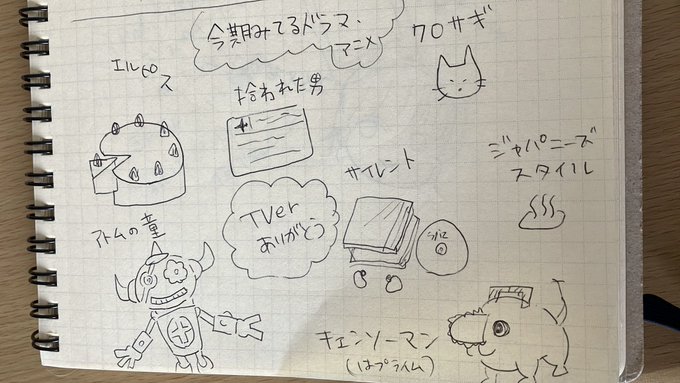 今期みてるドラマ、
アニメ
クロサギ
エルピス
拾われた男
ジャパニーズ
スタイル
サイレント
TVer
ありがとう
アトムの童
キェンソーマン
(はプライム)